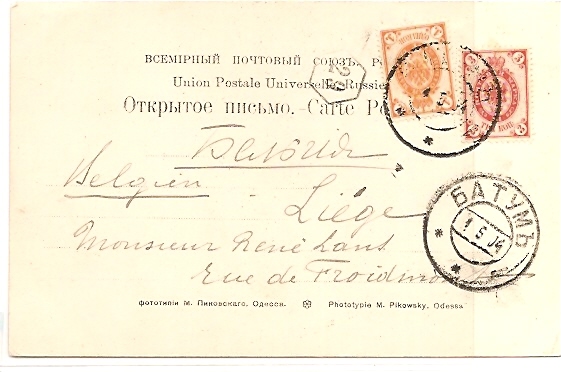 ВСЕМІРНЫЙ ПОЧТОВЫЙ СОЮЗЪ.
Union Postale Universelle. Russie
Открытое письмо. — Carte
Belgien
Liége
Monsieur René Lans
Rue de Froidmont
БАТУМЪ
1 5 04
фототипія М. Пиковскаго, Одесса. Phototypie M. Pikowsky, Odessa